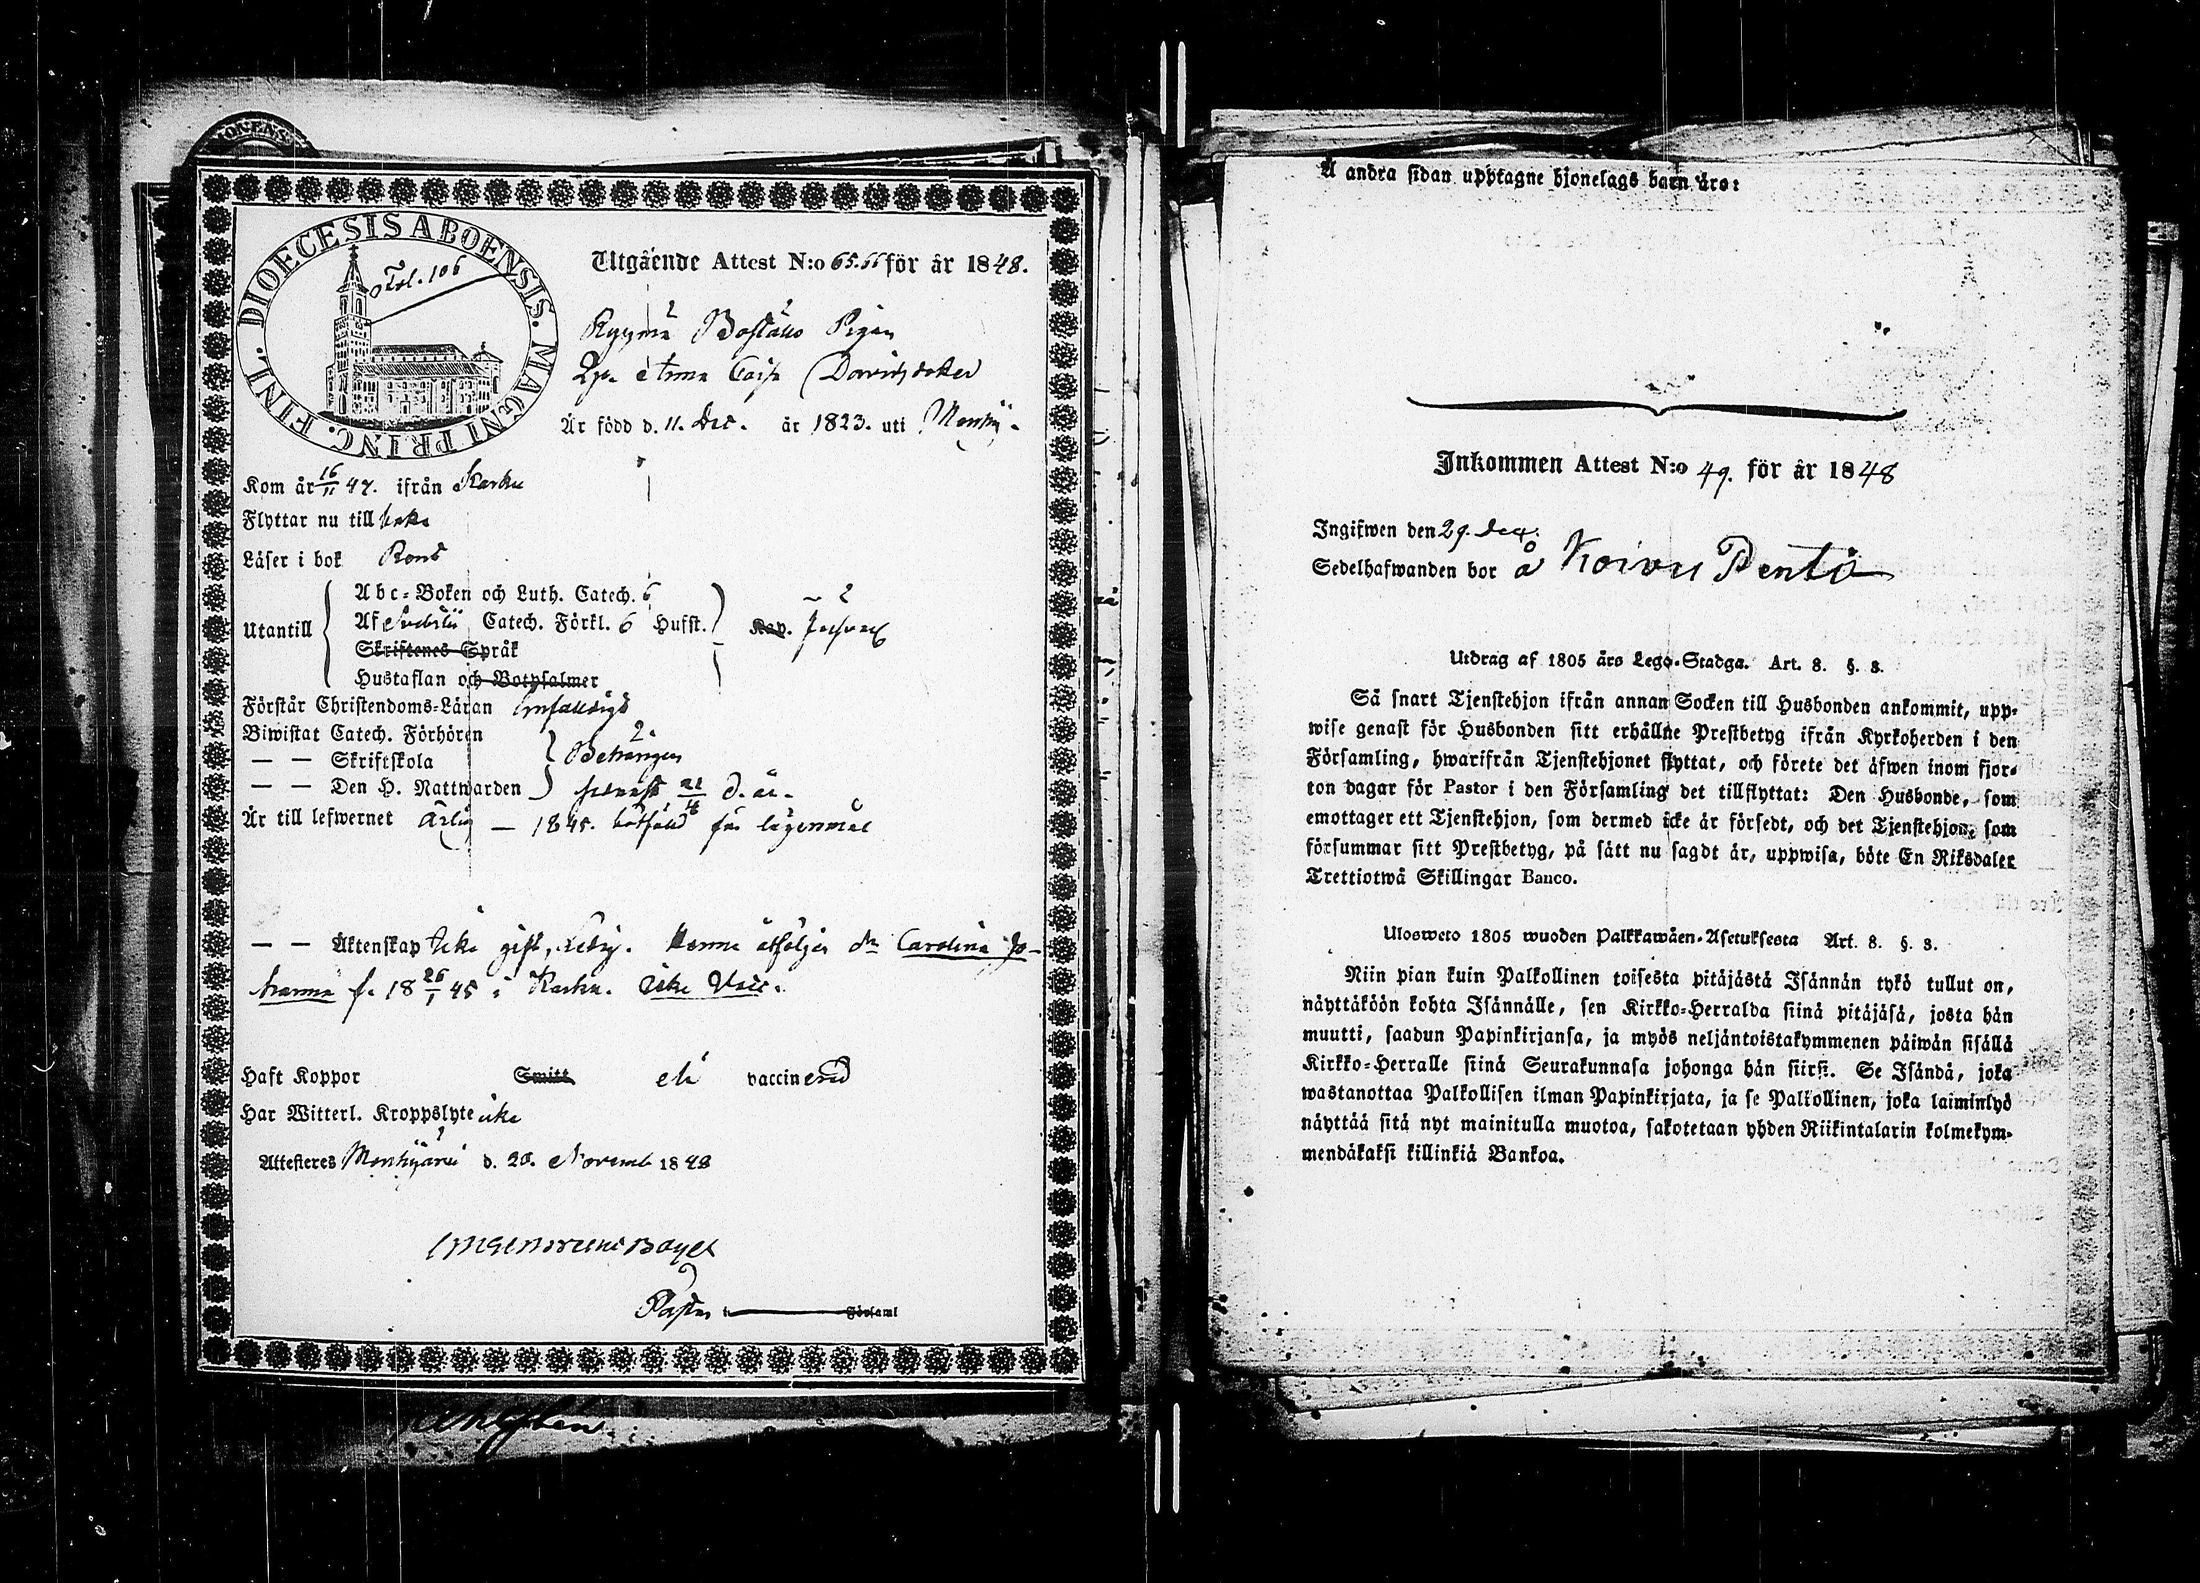 DIOECESIS ABOENSIS. MAGNI PRINC. FINL.
Fol. 106
Utgående Attest N:o 65.66 för år 1848.
Bostålls Pigan
Anna Caisa Davidsdotter
Är född d. 11. Dec. år 1823. uti
Kom år 16/11 47. ifrån Karku
Flyttar nu till
Läser i bok Rent
Utantill
Abc-Boken och Luth. Catech. 6
Af Svebilii Catech. Förkl. 6 Husst.
Skriftenes Språk
Hustaflan och Botpsalmer
Kap.
Förstår Christendoms-Läran Enfaldigt
Biwistat Catech. Förhören
— — Skriftskola
— — Den H. Nattwarden
d. år.
Är till lefwernet Ärlig — 1845. bötfäld för lägersmål
— — Äktenskap icke gift, ledig. Henne åtföljer dr Carolina Jo-
hanna f. 18 26/1 45 i Karku. icke Vacc.
Haft Koppor Smitt ej vaccinerad
Har Witterl. Kroppslyte icke
Attesteres Mouhijärvi d. 20. Novemb 1848
Pastor i Församl
Å andra sidan upptagne hjonelags barn äro:
Inkommen Attest N:o 49. för år 1848
Ingifwen den 29. Dec.
Sedelhafwanden bor å Koivu Pentio
Utdrag af 1805 års Lego-Stadga. Art. 8. §. 3.
Så snart Tjenstehjon ifrån annan Socken till Husbonden ankommit, upp-
wise genast för Husbonden sitt erhållne Prestbetyg ifrån Kyrkoherden i den
Församling, hwarifrån Tjenstehjonet flyttat, och förete det äfwen inom fjor-
ton dagar för Pastor i den Församling det tillflyttat: Den Husbonde, som
emottager ett Tjenstehjon, som dermed icke är försedt, och det Tjenstehjon, som
försummar sitt Prestbetyg, på sätt nu sagdt är, uppwisa, böte En Riksdaler
Trettiotwå Skillingar Banco.
Ulosweto 1805 wuoden Palkkawäen-Asetuksesta Art. 8. §. 3.
Niin pian kuin Palkollinen toisesta pitäjästä Isännän tykö tullut on,
näyttäköön kohta Isännälle, sen Kirkko-Herralda siinä pitäjäsä, josta hän
muutti, saadun Papinkirjansa, ja myös neljäntoistakymmenen päiwän sisällä
Kirkko-Herralle siinä Seurakunnasa johonga hän siirsi. Se Isändä, joka
wastanottaa Palkollisen ilman Papinkirjata, ja se Palkollinen, joka laiminlyö
näyttää sitä nyt mainitulla muotoa, sakotetaan yhden Riikintalarin kolmekym-
mendäkaksi killinkiä Bankoa.